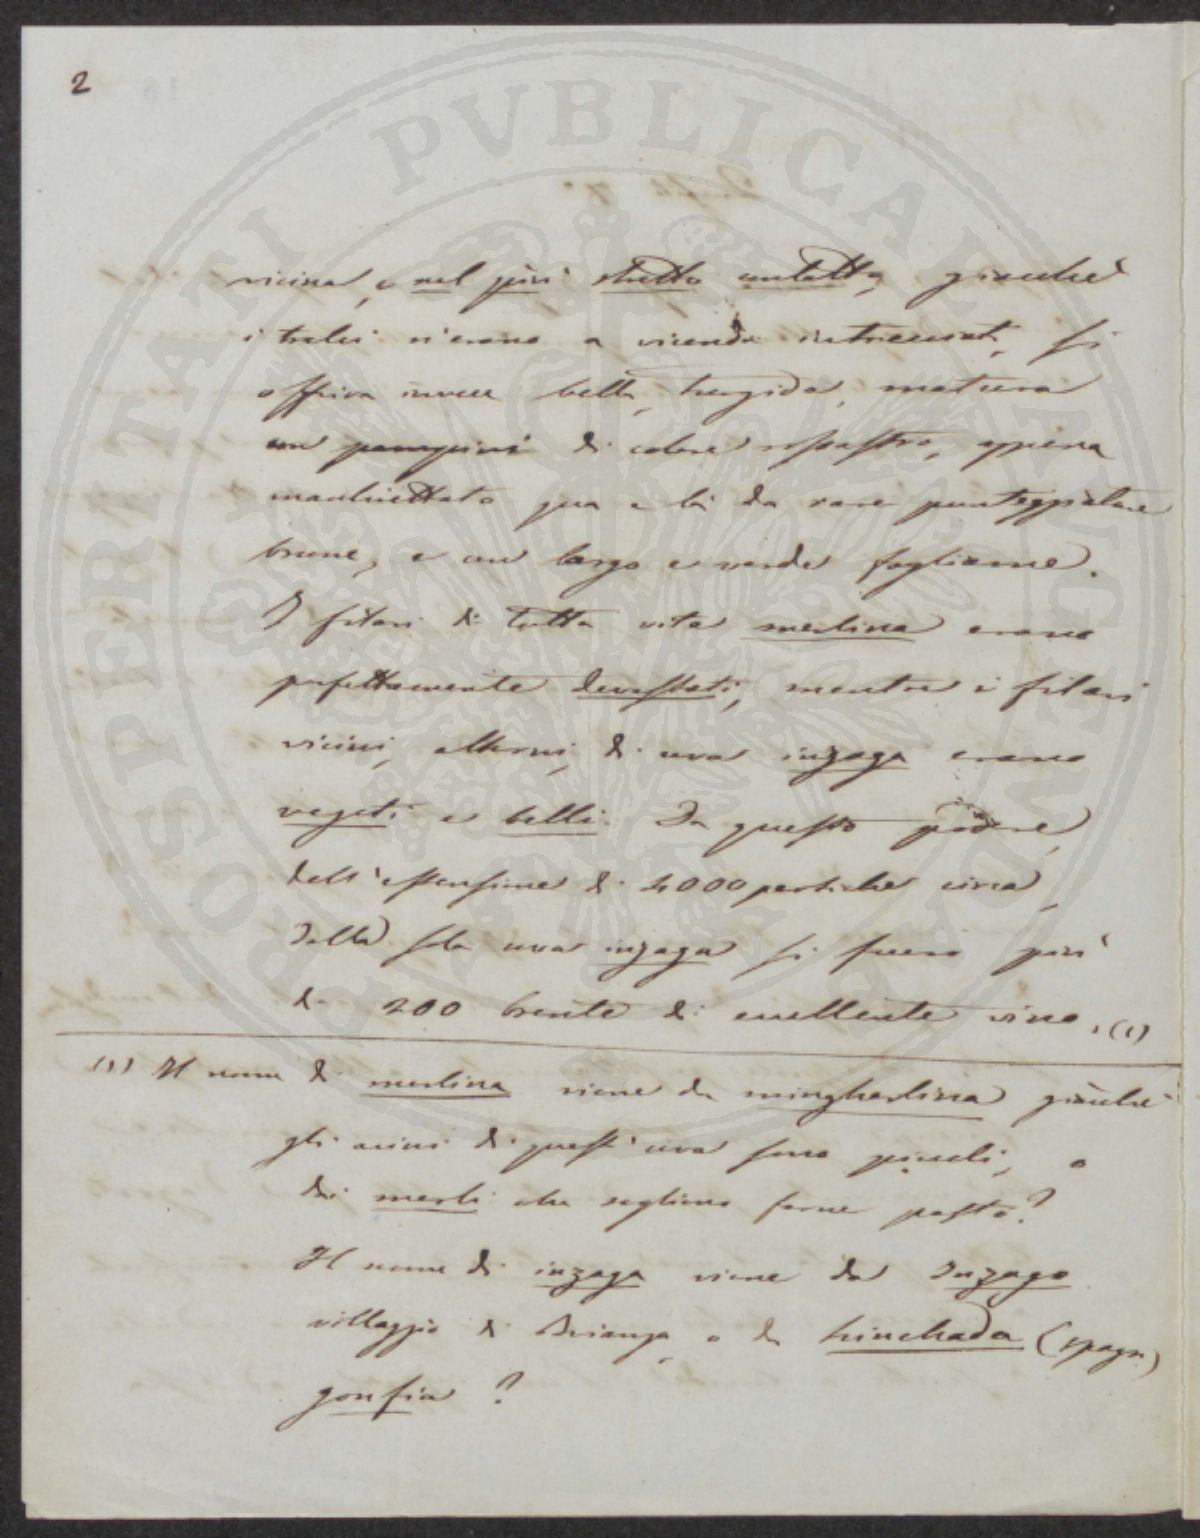 2
vicina, e nel più stretto contatto, giacchè
i tralci s'erano a vicenda intrecciati, si
offriva invece bella, turgida, matura
con pampini di colore rossastro, appena
macchiettato qua e là da rare punteggiature
brune, e con largo e verde fogliame.
I filari di tutta vite merlina erano
perfettamente devastati, mentre i filari
vicini, alterni, di uva inzaga erano
vegeti e belli. Da questo podere,
dell'estensione di 4000 pertiche circa,
dalla sola uva inzaga si fecero più
di 200 brente di eccellente vino. (1)
(1) Il nome di merlina viene da mingherlina giacchè
gli acini di quest'uva sono piccoli, o
dai merli che sogliono farne pasto?
Il nome di inzaga viene da Inzago
villaggio di Brianza, o da hinchada (spagn.)
gonfia?
PROSPERITATI PVBLICAE AVGENDAE